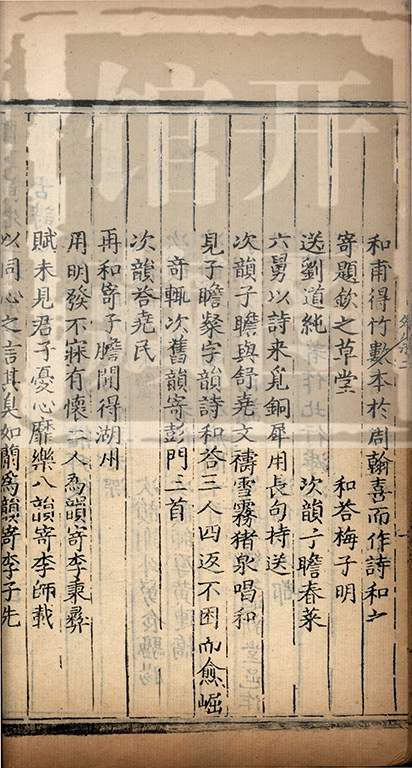 和甫得竹數本於周翰喜而作詩和之
寄題欽之草堂　和荅梅子明
送劉道純　次韻子瞻春菜
六舅以詩来覓銅犀用長句持送
次韻子瞻與舒堯文禱雪霧猪泉唱和
見子瞻粲字韻詩和荅三人四返不困而愈崛
奇輒次舊韻寄彭門三首
次韻荅堯民
再和寄子瞻聞得湖州
用明發不寐有懷二人為韻寄李秉彝
賦未見君子憂心靡樂八韻寄李師載
以同心之言其臭如蘭為韻寄李子先
开馆